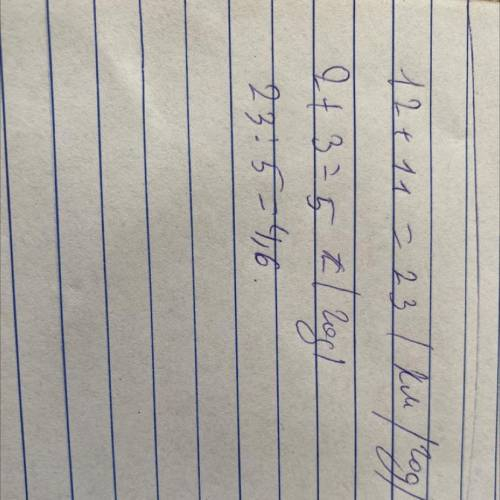 12 + 11 = 23 | км | год |
2 + 3 = 5 t | год |
23 : 5 = 4,6.